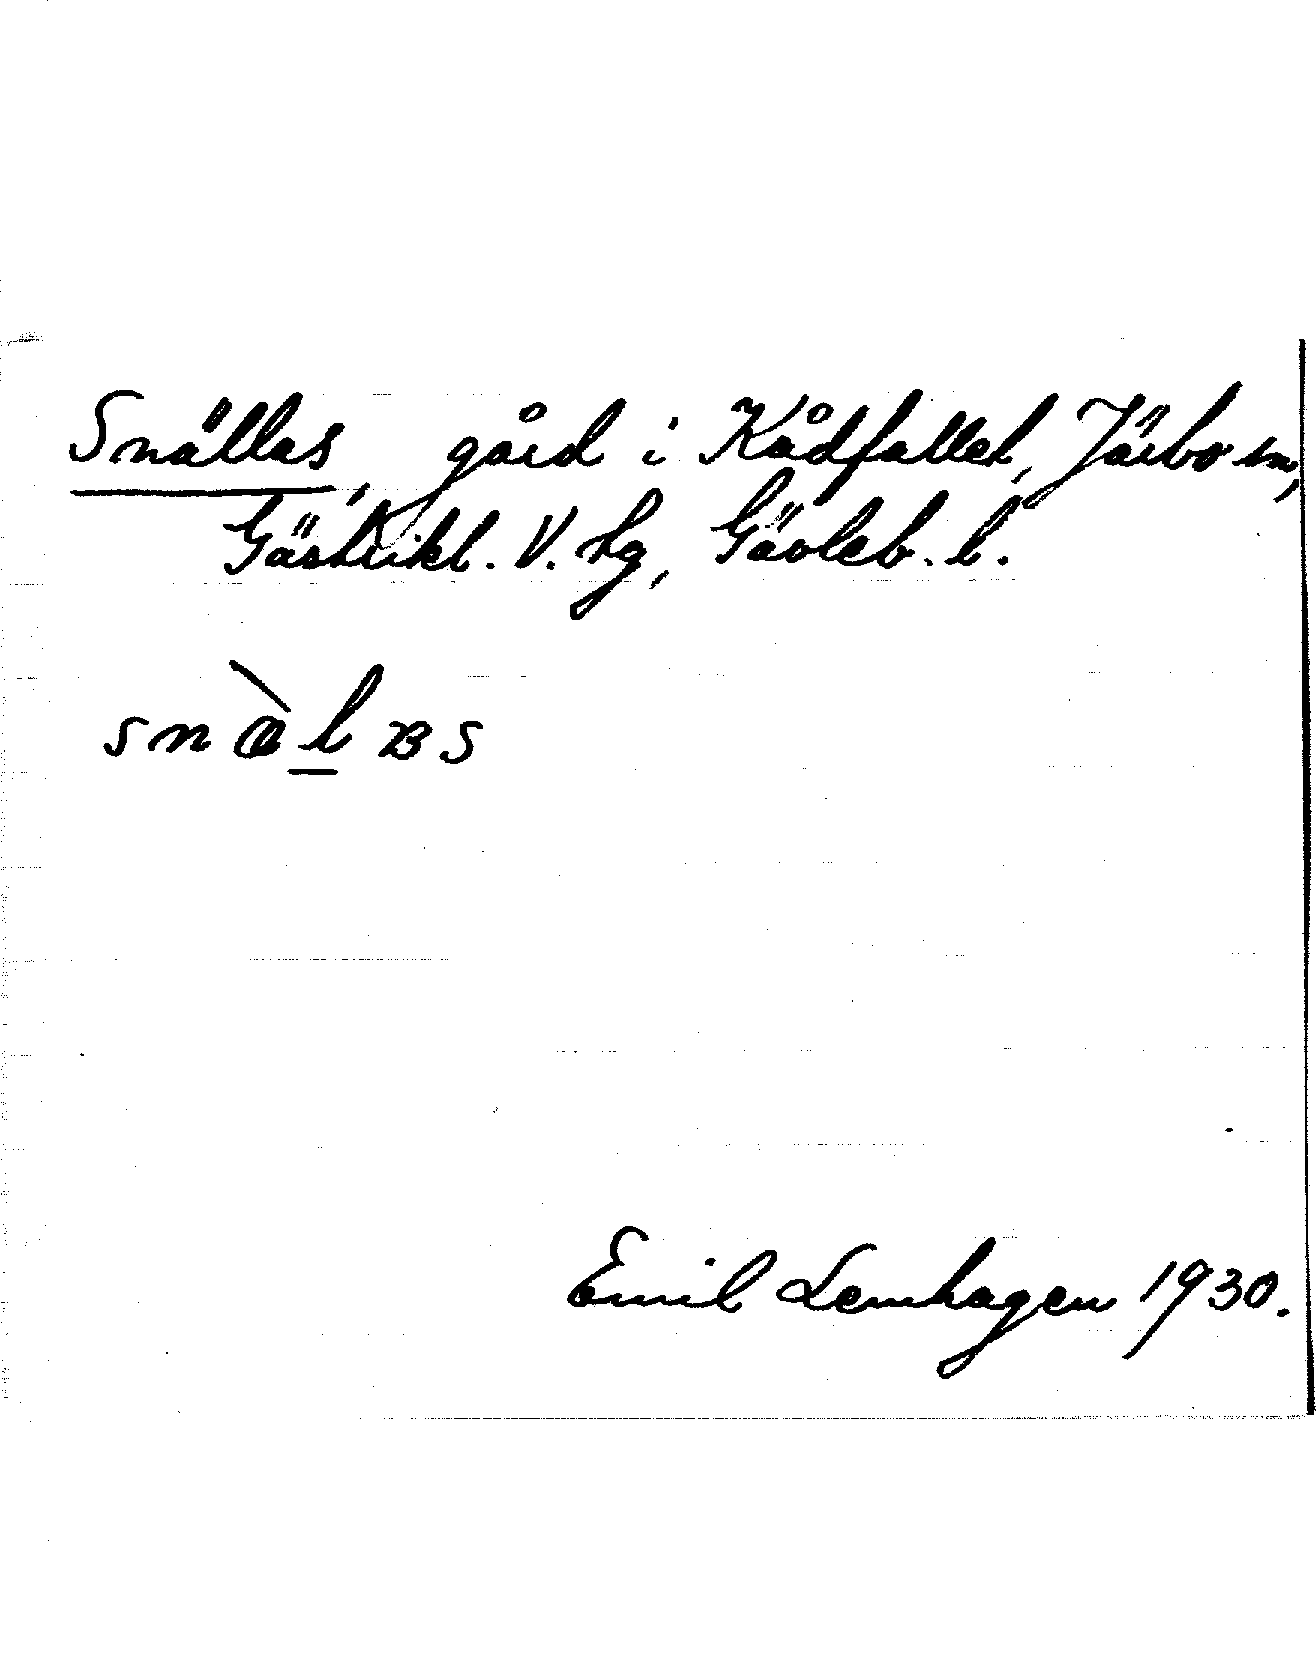 Snällas, gård i Kådfallet, Järbo sn,
Gästrikl. V. tg, Gävleb. l.
snæ̀l̲ʙs
Emil Lemhagen 1930.